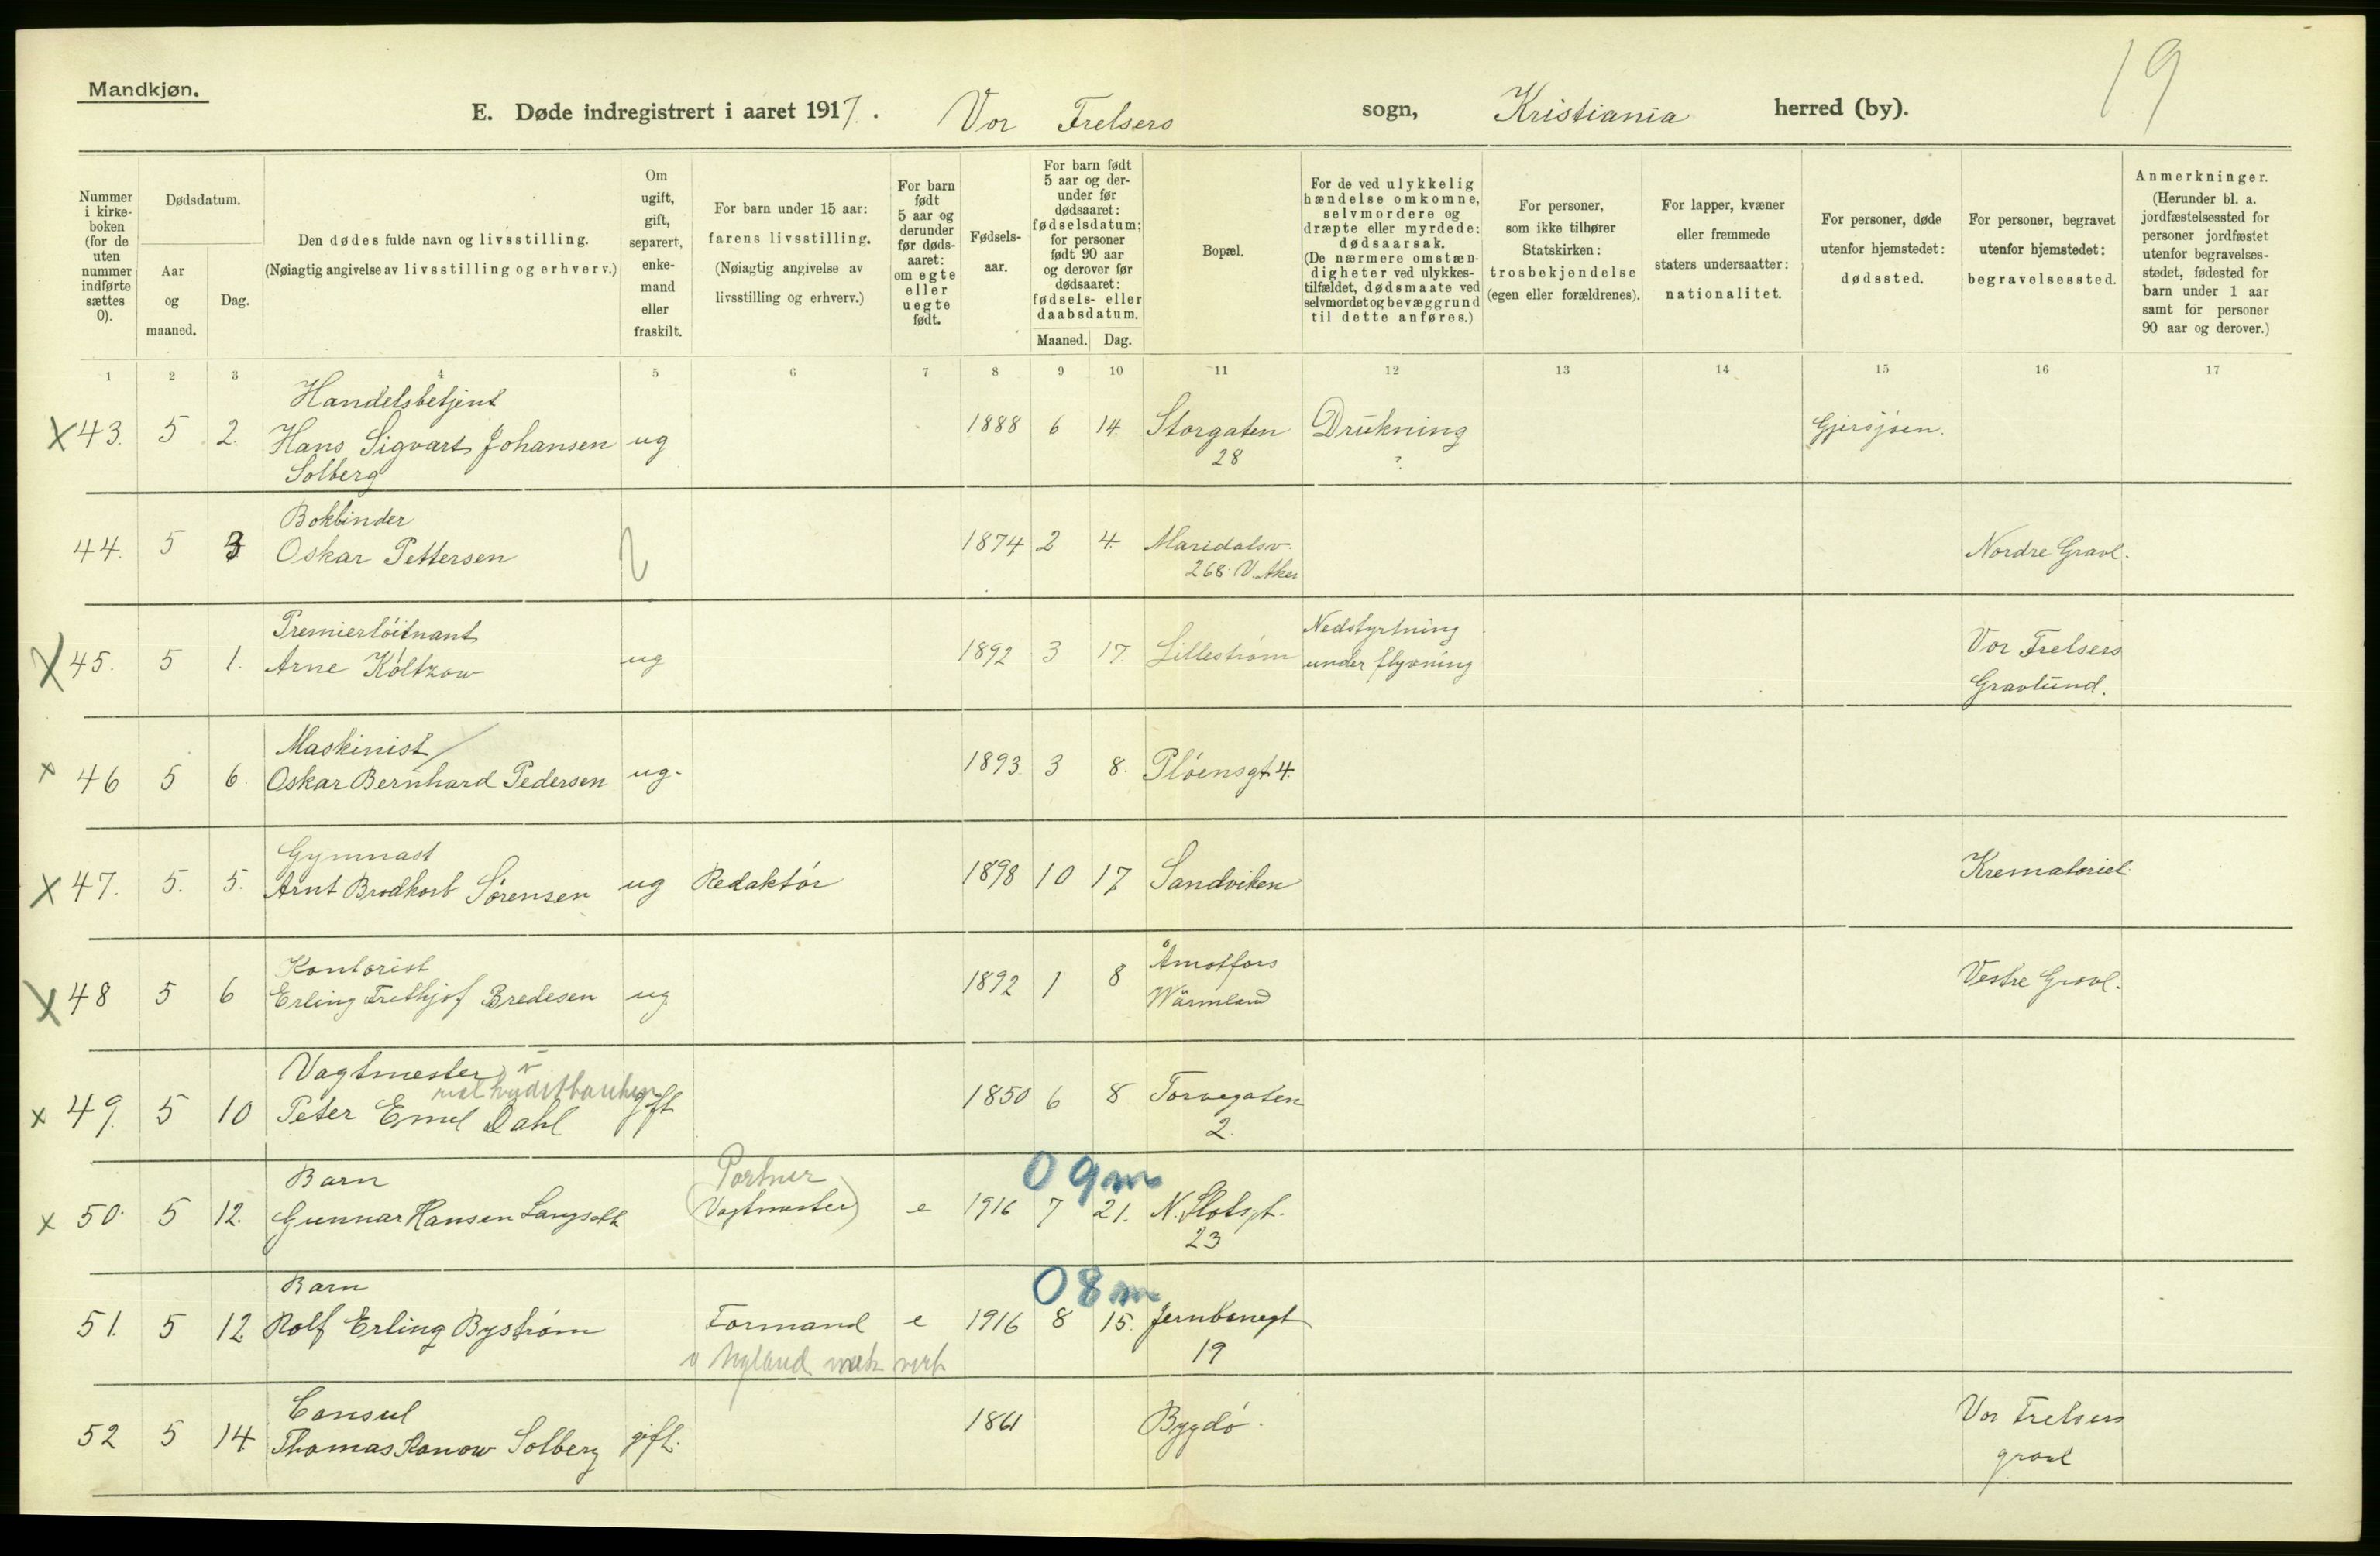 19
Mandkjøn.
E. Døde indregistrert i aaret 1917. Vor Frelsers sogn, Kristiania herred (by).
Nummer i kirkeboken (for de uten nummer indførte sættes 0).
Dødsdatum.
Aar og maaned.
Dag.
Den dødes fulde navn og livsstilling. (Nøiagtig angivelse av livsstilling og erhverv.)
Om ugift, gift, separert, enkemand eller fraskilt.
For barn under 15 aar: farens livsstilling. (Nøiagtig angivelse av livsstilling og erhverv.)
For barn født 5 aar og derunder før dødsaaret: om egte eller uegte født.
Fødselsaar.
For barn født 5 aar og derunder før dødsaaret: fødselsdatum; for personer født 90 aar og derover før dødsaaret: fødsels- eller daabsdatum.
Maaned. Dag.
Bopæl.
For de ved ulykkelig hændelse omkomne, selvmordere og dræpte eller myrdede: dødsaarsak. (De nærmere omstændigheter ved ulykkestilfældet, dødsmaate ved selvmordet og bevæggrund til dette anføres.)
For personer, som ikke tilhører Statskirken: trosbekjendelse (egen eller forældrenes).
For lapper, kvæner eller fremmede staters undersaatter: nationalitet.
For personer, døde utenfor hjemstedet: dødssted.
For personer, begravet utenfor hjemstedet: begravelsessted.
Anmerkninger. (Herunder bl. a. jordfæstelsessted for personer jordfæstet utenfor begravelsesstedet, fødested for barn under 1 aar samt for personer 90 aar og derover.)
1 2 3 4 5 6 7 8 9 10 11 12 13 14 15 16 17
Handelsbetjent
X 43. 5 2. Hans Sigvart Johansen ug 1888 6 14. Storgaten Drukning Gjersjøen.
Solberg 28 ?
Bokbinder
44. 5 3 Oskar Pettersen 1874 2 4. Maridalsv. Nordre Gravl.
268. V. Aker
Premierløitnant Nedstyrtning
X 45. 5 1. Arne Költzow ug 1892 3 17. Lillestrøm under flyvning Vor Frelsers
Gravlund.
Maskinist
x 46 5 6. Oskar Bernhard Pedersen ug. 1893 3 8. Pløensgt 4.
Gymnast
X 47. 5. 5. Arnt Brodkorb Sørensen ug Redaktør 1898 10 17 Sandviken Krematoriet.
Kontorist Åmotfors
X 48 5 6 Erling Frithjof Bredesen ug 1892 1 8 Wärmland Vestre Gravl.
Vagtmester
x 49. 5 10 Peter Emil Dahl gift 1850 6 8 Torvegaten
2.
Barn Portner 0 9 m
x 50. 5 12. Gunnar Hansen Langseth (Vagtmester) e 1916 7 21. N. Slotsgt.
23
Barn 0 8 m
51. 5 12 Rolf Erling Bystrøm Formand e 1916 8 15. Jernbanegt
v Nyland mek verk 19
Consul
52 5 14 Thomas Ranow Solberg gift. 1861 Bygdø. Vor Frelsers
gravl